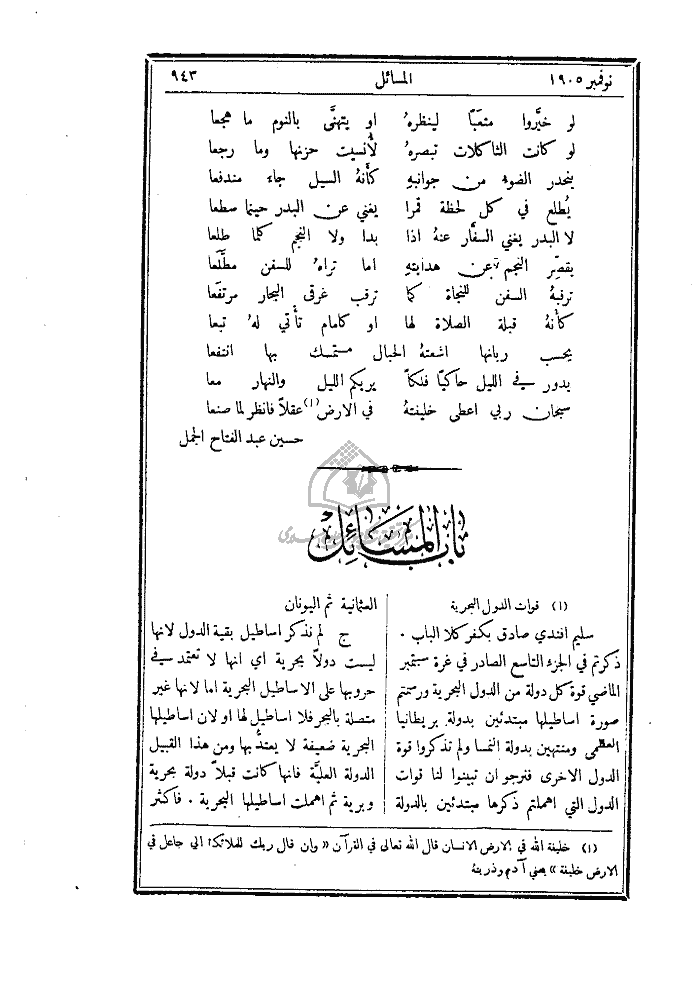 نوفمبر ١٩٠٥ المسائل ٩٤٣
لو خيَّروا متعَبًا لينظرهُ او يتهنَّى بالنوم ما هجعا
لو كانت الثاكلات تبصرهُ لأنسيت حزنها وما رجعا
ينحدر الضوء من جوانبهِ كأنهُ السيل جاء مندفعا
يُطلع في كل لحظة قمرا يغني عن البدر حيثما سطعا
لا البدر يغني السفَّار عنهُ اذا بدا ولا النجم كلما طلعا
يقصر النجم عن هدايتهِ اما تراهُ للسفن مطَّلعا
ترقبهُ السفن للنجاة كما ترقب غرقى البحار مرتفعا
كأنهُ قبلة الصلاة لها او كامام تأتي لهُ تبعا
يحسب ربانها اشعتهُ الحبال مستمسك بها انتفعا
يدور في الليل حاكيًا فلكًا يريكم الليل والنهار معا
سبحان ربي اعطى خليفتهُ في الارض(١) عقلاً فانظر لما صنعا
حسين عبد الفتاح الجمل
باب المسائل
(١) قوات الدول البحرية
سليم افندي صادق بكفر كلا الباب .
ذكرتم في الجزء التاسع الصادر في غرة ستمبر
الماضي قوة كل دولة من الدول البحرية ورسمتم
صورة اساطيلها مبتدئين بدولة بريطانيا
العظمى ومنتهين بدولة النمسا ولم تذكروا قوة
الدول الاخرى فنرجو ان تبينوا لنا قوات
الدول التي اهملتم ذكرها مبتدئين بالدولة
العثمانية ثم اليونان
ج لم نذكر اساطيل بقية الدول لانها
ليست دولاً بحرية اي انها لا تعتمد في
حروبها على الاساطيل البحرية اما لانها غير
متصلة بالبحر فلا اساطيل لها او لان اساطيلها
البحرية ضعيفة لا يعتدُّ بها ومن هذا القبيل
الدولة العليَّة فانها كانت قبلاً دولة بحرية
وبرية ثم اهملت اساطيلها البحرية . فاكثر
(١) خليفة الله في الارض الانسان قال الله تعالى في القرآن « وان قال ربك للملائكة اني جاعل في
الارض خليفة » يعني آدم وذريتهُ